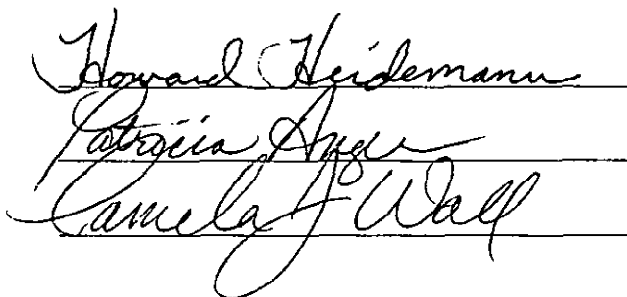 Howard Heidemann
Patricia
Pamela J Wall